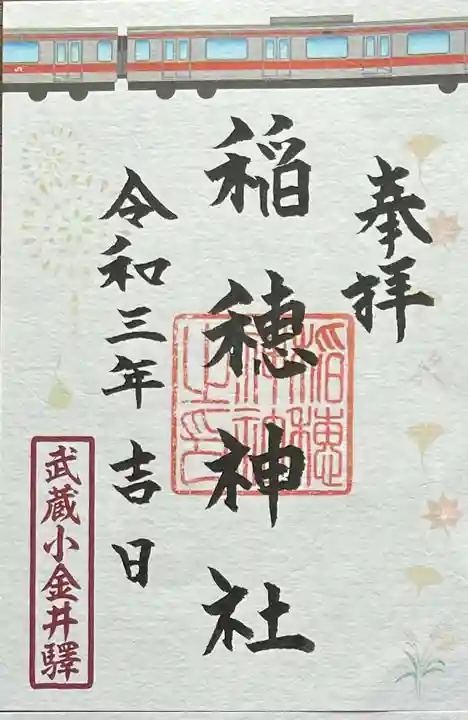 奉拝
稲穂神社
稲穂神社之印
令和三年 吉日
武蔵小金井驛